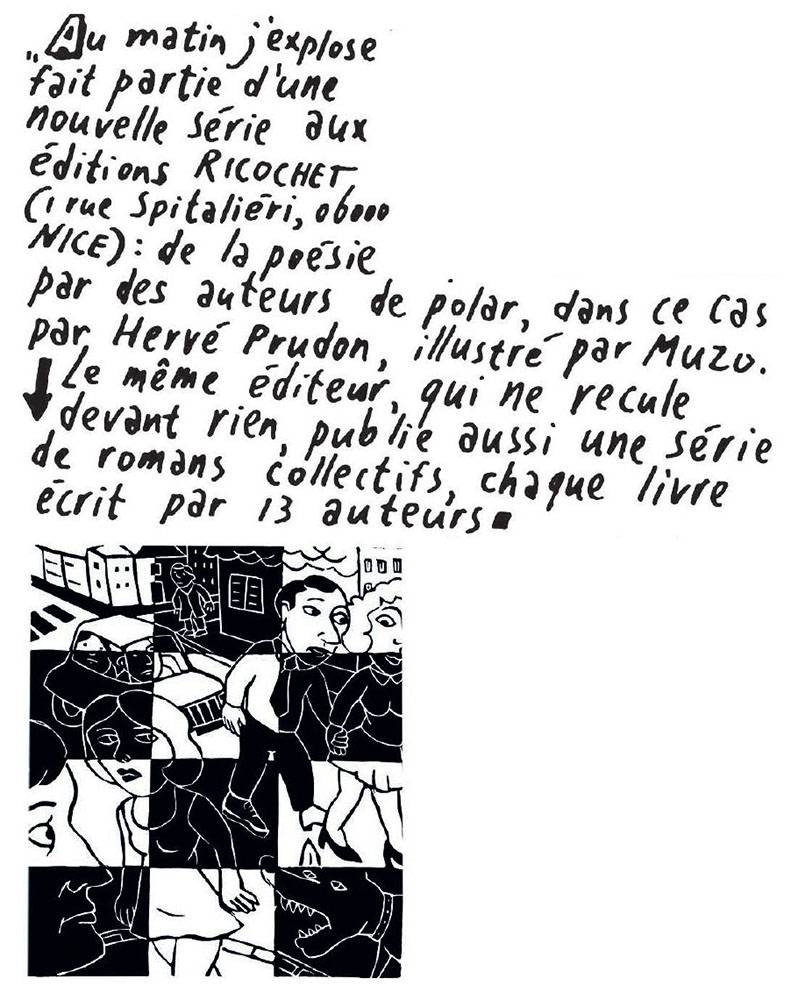 „Au matin j'explose
fait partie d'une
nouvelle série aux
éditions RICOCHET
(1 rue Spitaliéri, 06000
NICE): de la poésie
par des auteurs de polar, dans ce cas
par Hervé Prudon, illustré par Muzo.
Le même éditeur, qui ne recule
devant rien, publie aussi une série
de romans collectifs, chaque livre
écrit par 13 auteurs